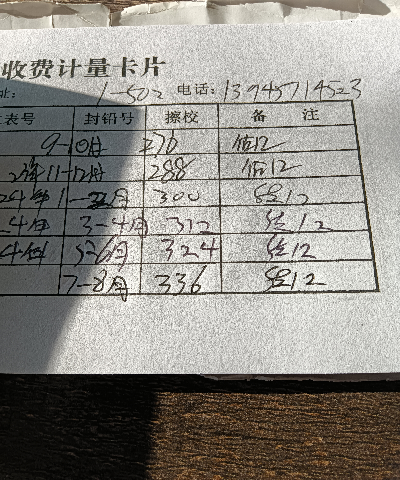 收费计量卡片
址: 1-502 电话: 13945714523
表号 封铅号 擦校 备 注
9-10月 276 估12
23年11-12月 288 估12
24年1-2月 300 12
24年 3-4月 312 12
24年 5-6月 324 12
7-8月 336 12